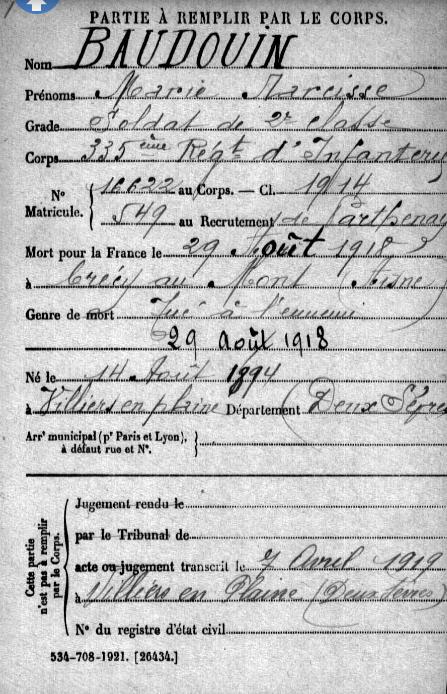 PARTIE À REMPLIR PAR LE CORPS.
Nom BAUDOUIN
Prénoms Marie Narcisse
Grade Soldat de 2e classe
Corps 335 ème Régt d'Infantery
N° Matricule. { 16622 au Corps. — Cl. 1914
549 au Recrutement de Parthenay
Mort pour la France le 29 Août 1918
à Crécy au Mont (Aisne)
Genre de mort Tué à l'ennemi
29 août 1918
Né le 14 Août 1894
à Villiers en plaine Département (Deux Sèvres
Arrt municipal (pr Paris et Lyon), à défaut rue et N°. }
Cette partie n'est pas à remplir par le Corps.
Jugement rendu le
par le Tribunal de
acte ou jugement transcrit le 7 Avril 1919
à Villiers en Plaine (Deux Sèvres)
N° du registre d'état civil
534-708-1921. [26434.]